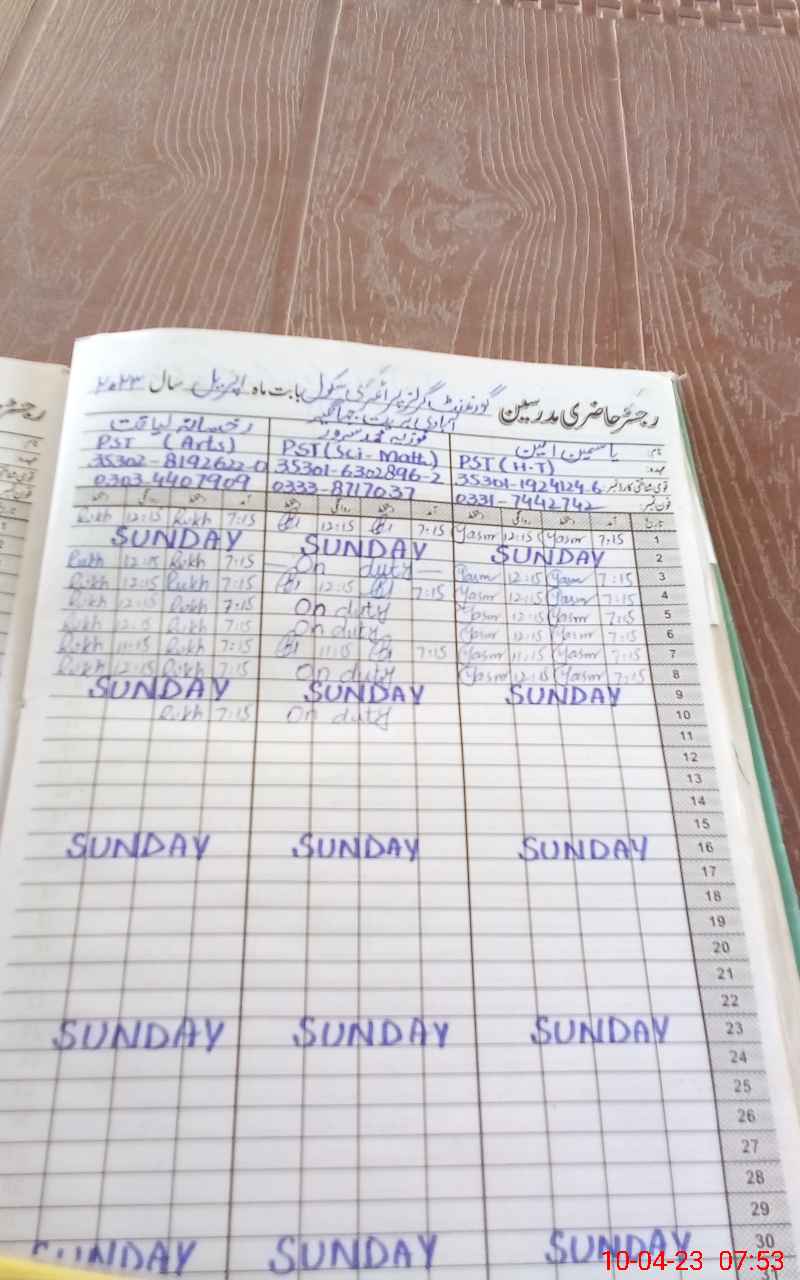 رجسٹر حاضری مدرسین گورنمنٹ گرلز پرائمری سکول بابت ماہ اپریل سال ۲۰۲۳
نام: یاسمین امین فوزیہ محمد سرور رخسانہ لیاقت
عہدہ: PST (H-T) PST (Sci-Math) PST (Arts)
قومی شناختی کارڈ نمبر: 35301-1924124-6 35301-6302896-2 35302-8192622-0
فون نمبر: 0331-7442742 0333-8717037 0303-4407909
تاریخ آمد دستخط روانگی دستخط آمد دستخط روانگی دستخط آمد دستخط
1 7:15 Yasm 12:15 Yasm 7:15 12:15 7:15 Rukh 12:15 Rukh
2 SUNDAY SUNDAY SUNDAY
3 7:15 Yasm 12:15 Yasm On duty 7:15 Rukh 12:15 Rukh
4 7:15 Yasm 12:15 Yasm 7:15 12:15 7:15 Rukh 12:15 Rukh
5 7:15 Yasm 12:15 Yasm On duty 7:15 Rukh 12:15 Rukh
6 7:15 Yasm 12:15 Yasm On duty 7:15 Rukh 12:15 Rukh
7 7:15 Yasm 11:15 Yasm 7:15 11:15 7:15 Rukh 11:15 Rukh
8 7:15 Yasm 12:15 Yasm On duty 7:15 Rukh 12:15 Rukh
9 SUNDAY SUNDAY SUNDAY
10 On duty 7:15 Rukh
11
12
13
14
15
16 SUNDAY SUNDAY SUNDAY
17
18
19
20
21
22
23 SUNDAY SUNDAY SUNDAY
24
25
26
27
28
29
30 SUNDAY SUNDAY SUNDAY
31
10-04-23 07:53